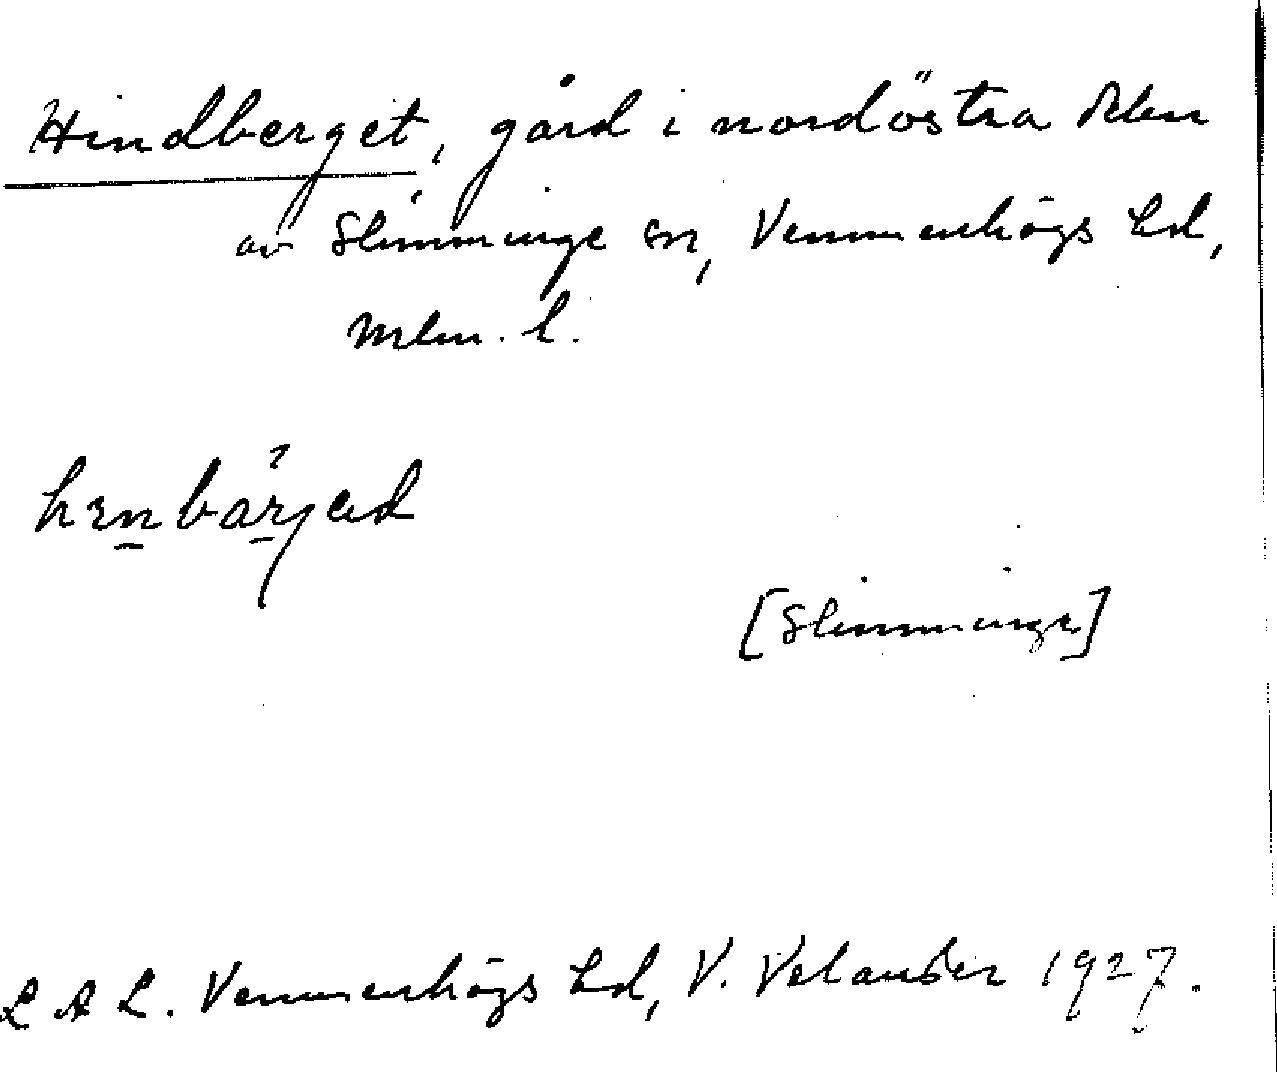 Hindberget, gård i nordöstra delen
av Slimminge sn, Vemmenhögs hd,
Mlm. l.
[Slimminge]
L A L. Vemmenhögs hd, V. Velander 1927.